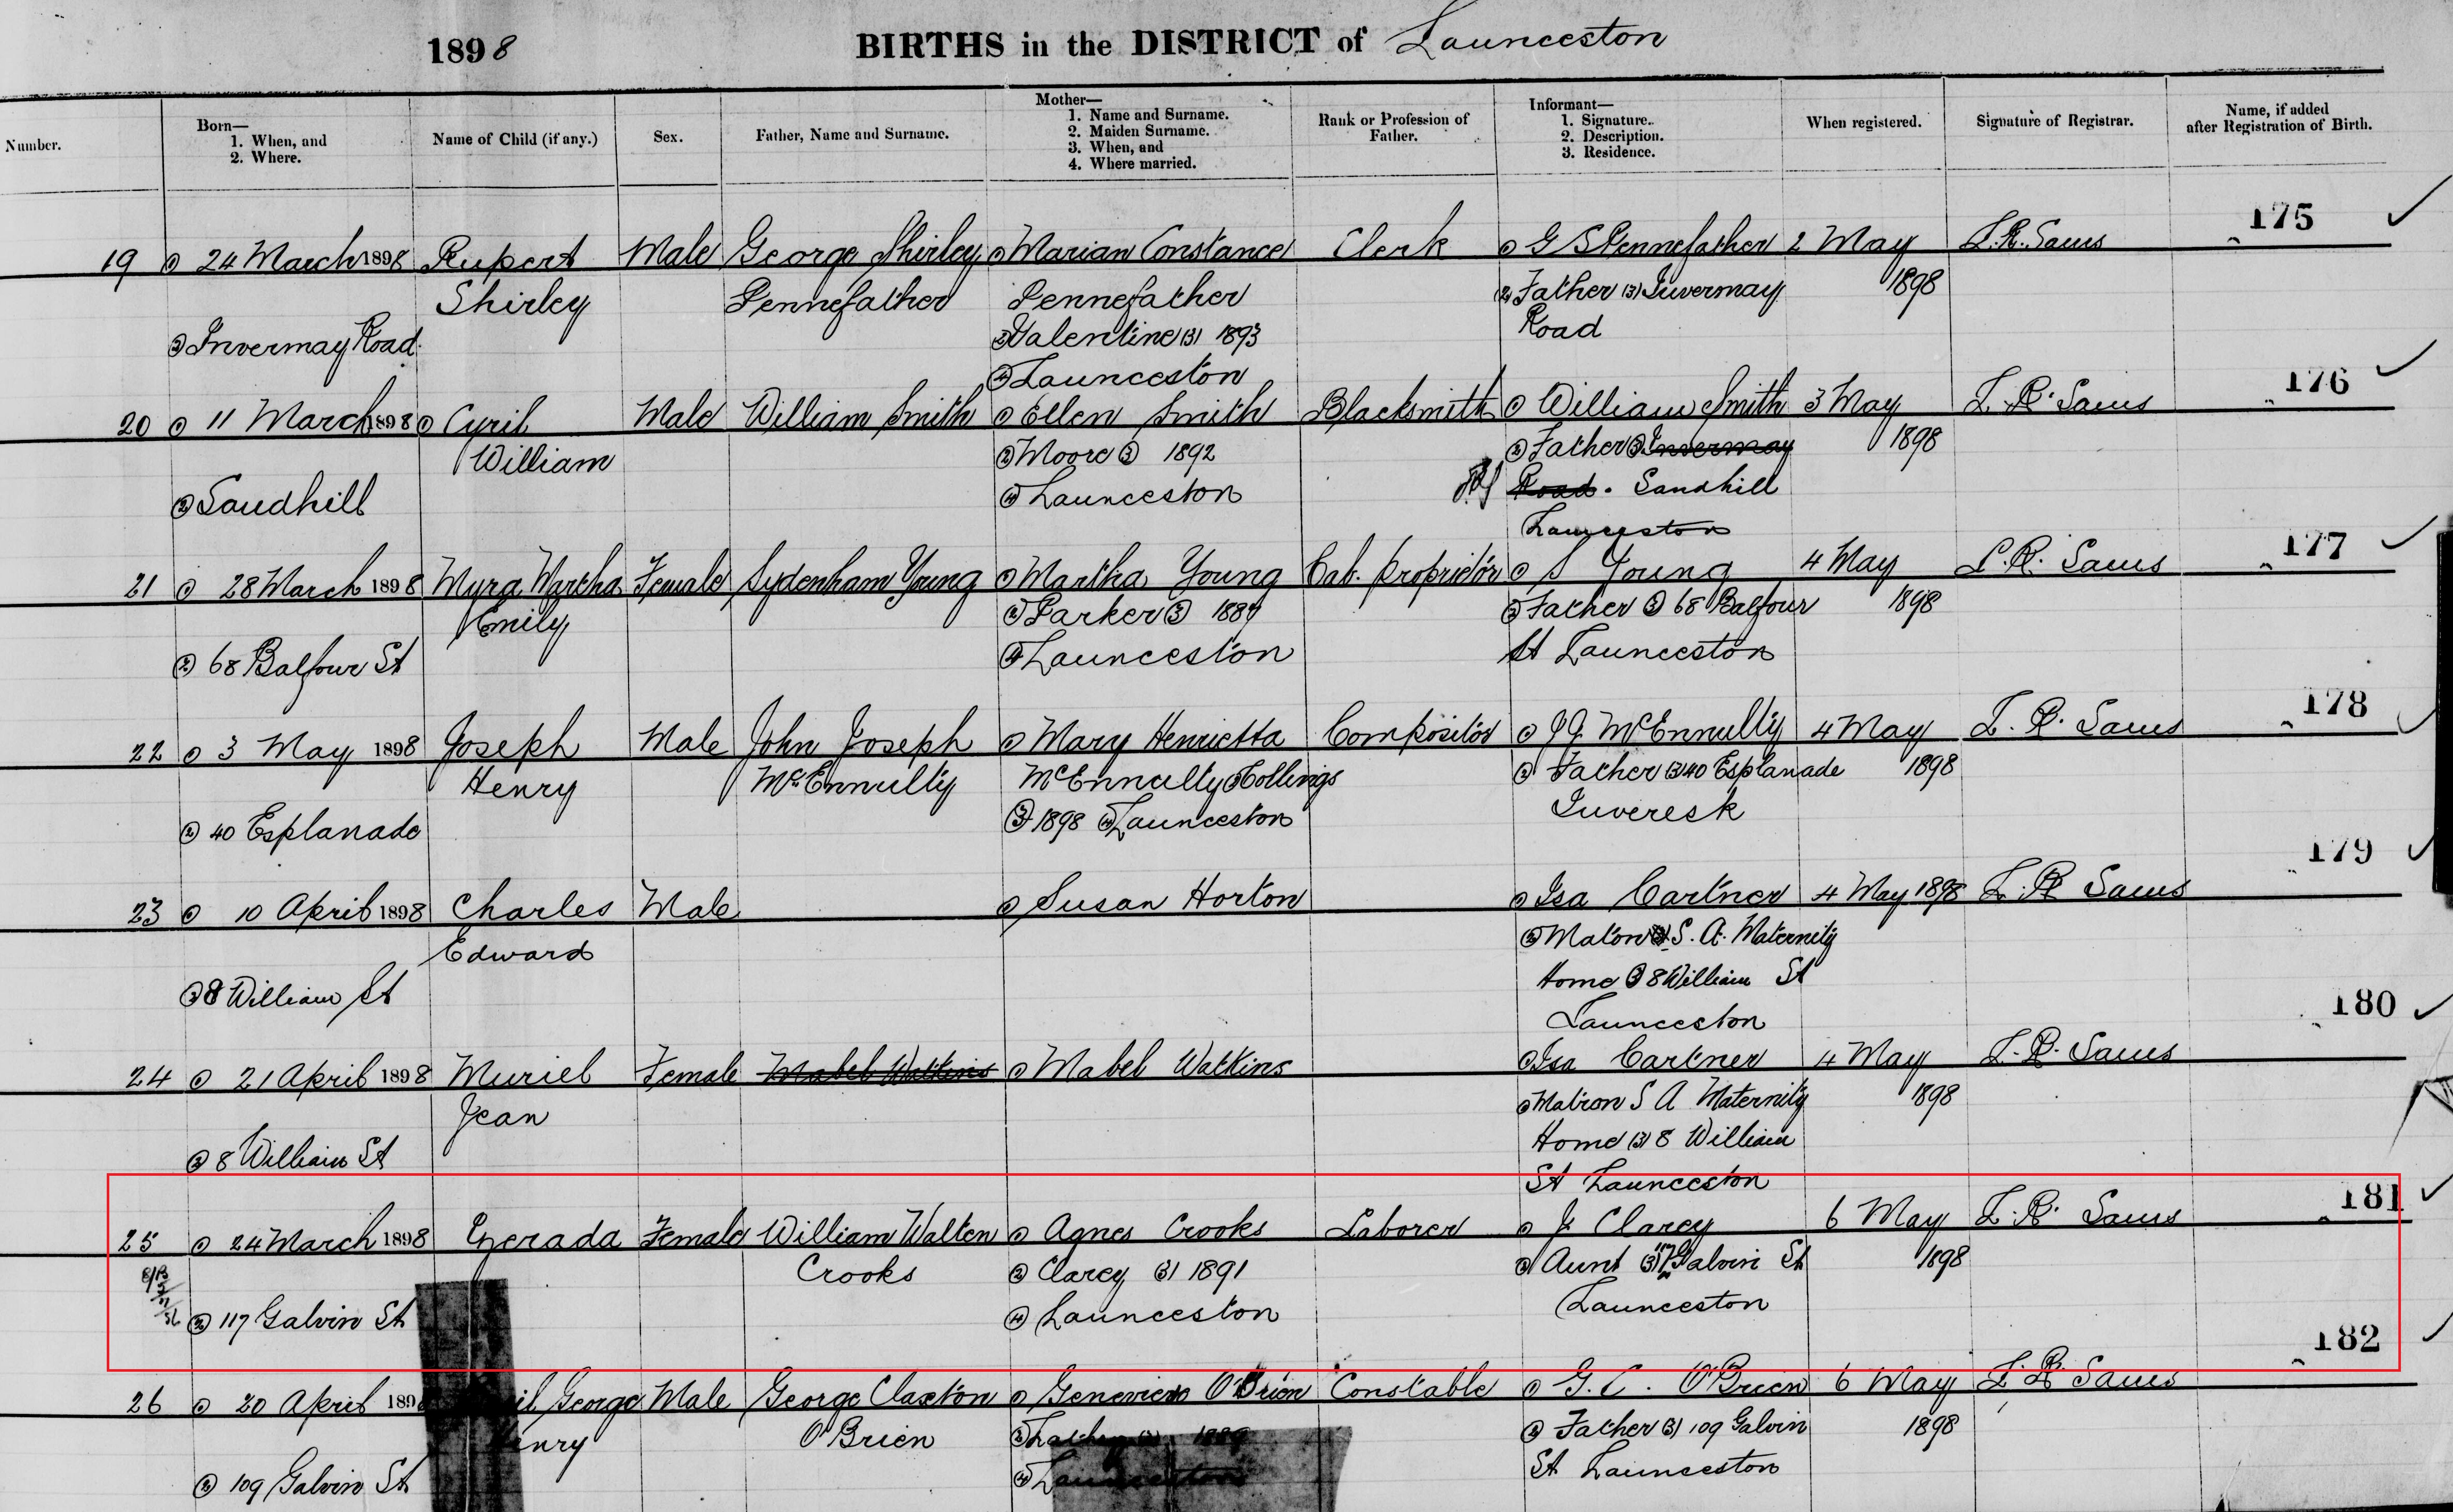 1898 BIRTHS in the DISTRICT of Launceston
Number.
Born—
1. When, and
2. Where.
Name of Child (if any.)
Sex.
Father, Name and Surname.
Mother—
1. Name and Surname.
2. Maiden Surname.
3. When, and
4. Where married.
Rank or Profession of
Father.
Informant—
1. Signature.
2. Description.
3. Residence.
When registered.
Signature of Registrar.
Name, if added
after Registration of Birth.
175
19 (1) 24 March 1898 Rupert Male George Shirley (1) Marian Constance Clerk (1) G S Pennefather 2 May L. R. Sams
Shirley Pennefather Pennefather (2) Father (3) Invermay 1898
(2) Invermay Road (2) Valentine (3) 1893 Road
(4) Launceston
176
20 (1) 11 March 1898 (1) Cyril Male William Smith (1) Ellen Smith Blacksmith (1) William Smith 3 May L. R. Sams
William (2) Moore (3) 1892 (2) Father (3) Invermay 1898
(2) Sandhill (4) Launceston Road. Sandhill
Launceston
177
21 (1) 28 March 1898 Myra Martha Female Sydenham Young (1) Martha Young Cab. Proprietor (1) S Young 4 May L. R. Sams
Emily (2) Parker (3) 1887 (2) Father (3) 68 Balfour 1898
(2) 68 Balfour St (4) Launceston St Launceston
178
22 (1) 3 May 1898 Joseph Male John Joseph (1) Mary Henrietta Compositor (1) J J McEnnulty 4 May L. R. Sams
Henry McEnnulty McEnnulty (2) Collings (2) Father (3) 40 Esplanade 1898
(2) 40 Esplanade (3) 1898 (4) Launceston Inveresk
179
23 (1) 10 April 1898 Charles Male (1) Susan Horton (1) Isa Cartner 4 May 1898 L. R. Sams
Edward (2) Matron S. A. Maternity
(2) 8 William St Home (3) 8 William St
Launceston
180
24 (1) 21 April 1898 Muriel Female Mabel Watkins (1) Mabel Watkins (1) Isa Cartner 4 May L. R. Sams
Jean (2) Matron S A Maternity 1898
(2) 8 William St Home (3) 8 William
St Launceston
181
25 (1) 24 March 1898 Female William Walten (1) Agnes Crooks Laborer (1) J Clarcy 6 May L. R. Sams
Crooks (2) Clarcy (3) 1891 (2) Aunt (3) 117 Galvin St 1898
(2) 117 Galvin St (4) Launceston Launceston
182
26 (1) 20 April 189 George Male George Claxton (1) Genevieve O'Brien Constable (1) G. C. O'Brien 6 May L. R. Sams
Henry O'Brien (2) Father (3) 109 Galvin 1898
(2) 109 Galvin St (4) Launceston St Launceston